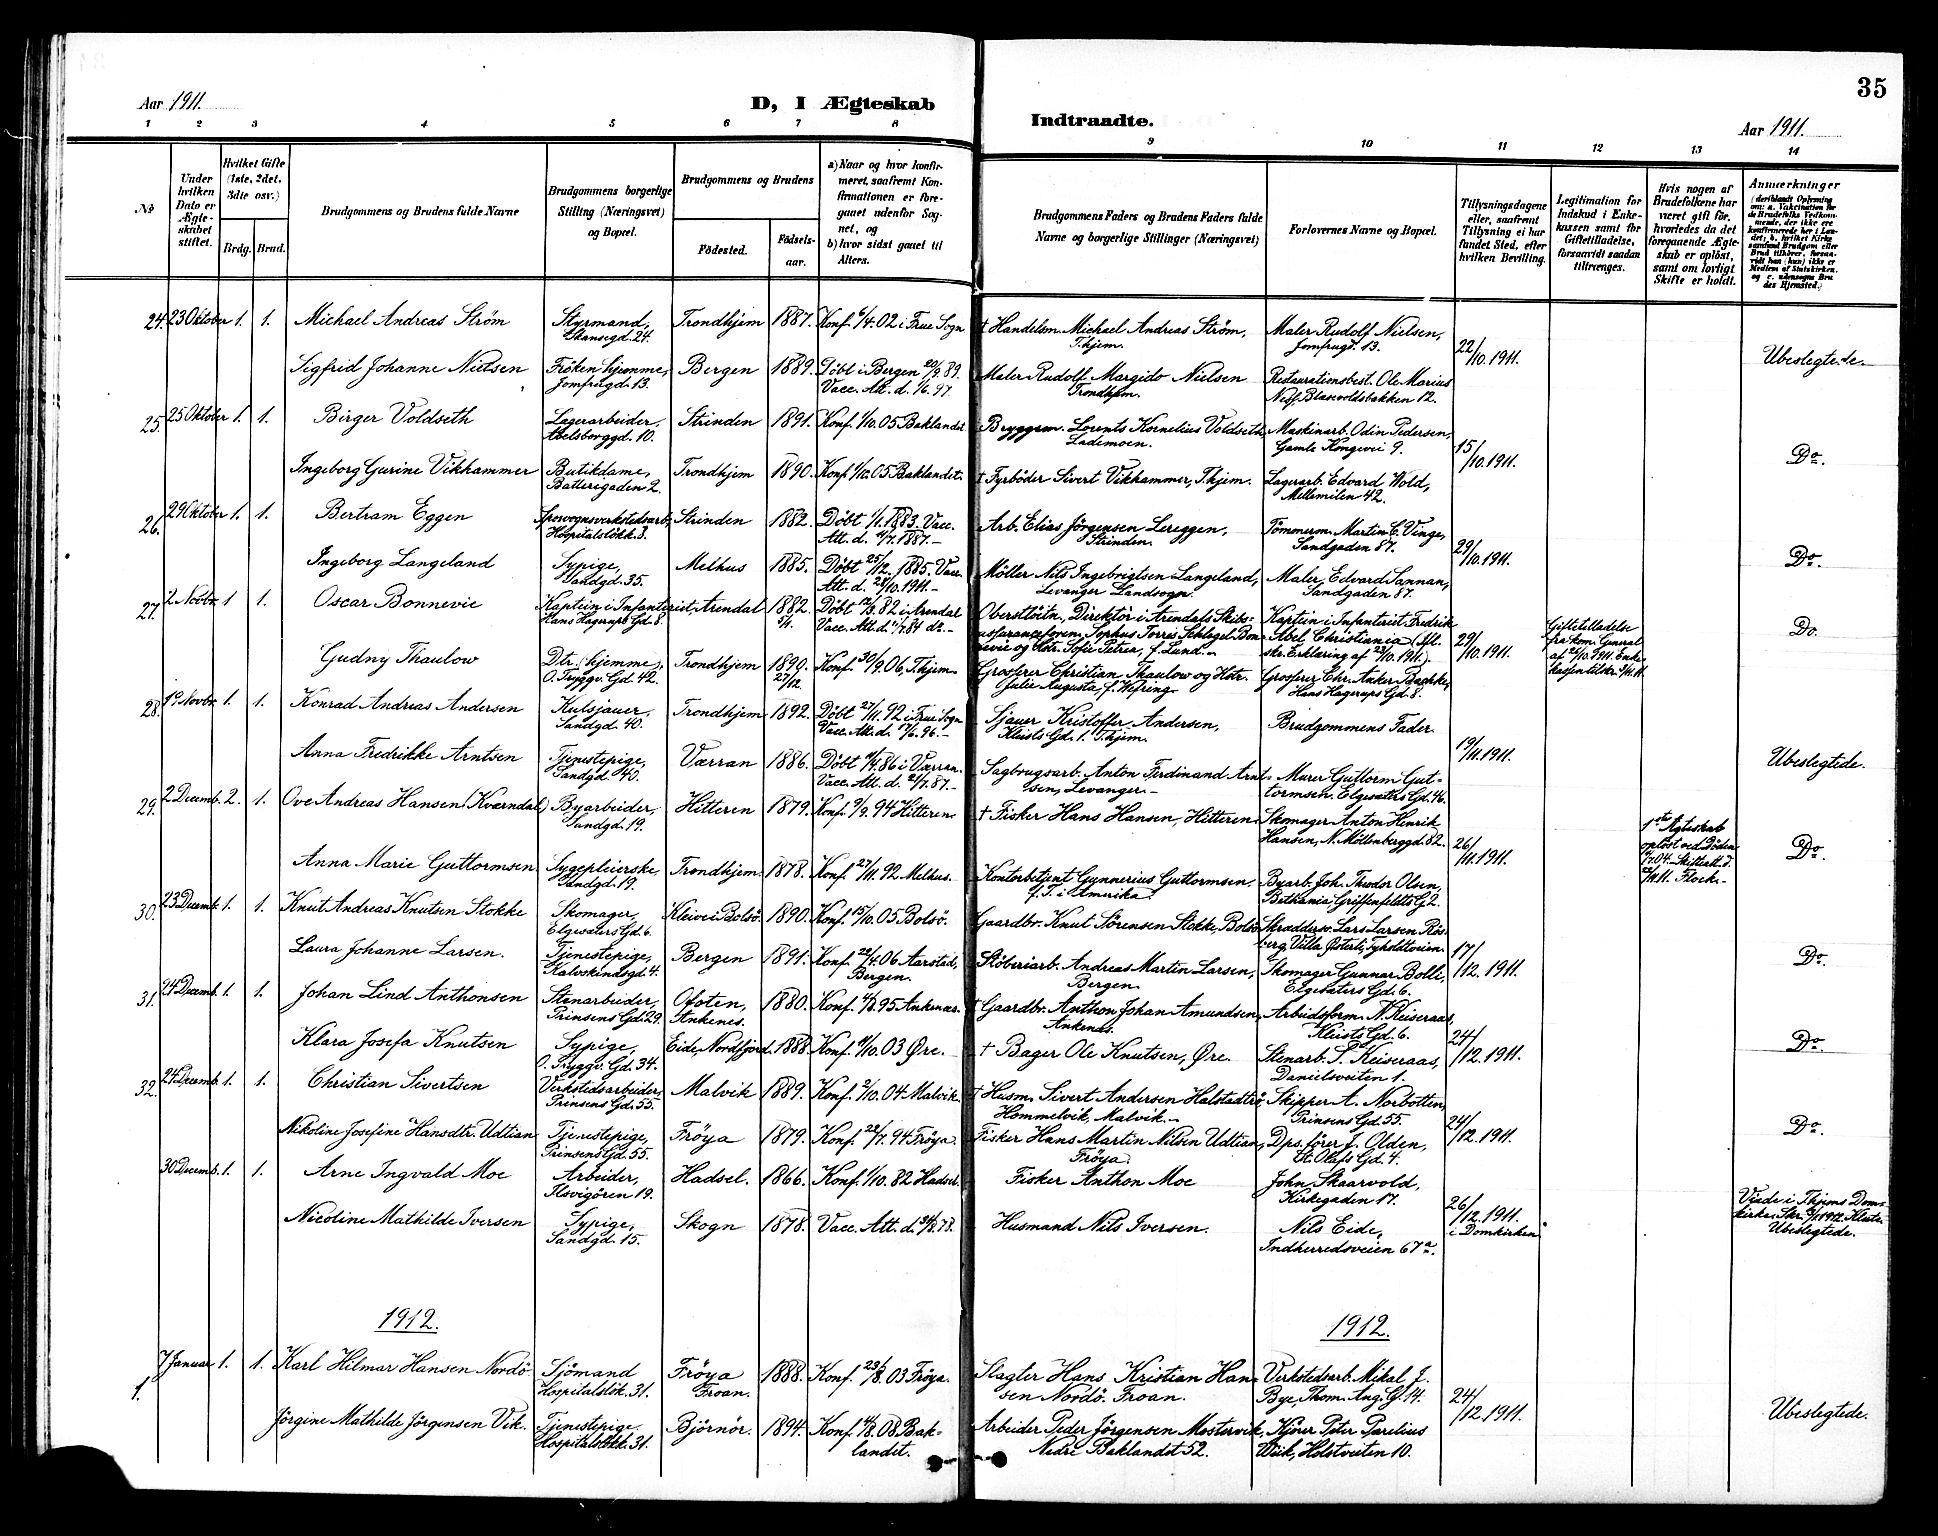 35
Aar 1911.
D, I Ægteskab
Indtraadte.
Aar 1911.
1 2 3 4 5 6 7 8 9 10 11 12 13 14
No
Under hvilken Dato er Ægteskabet stiftet.
Hvilket Gifte (1ste, 2det, 3die osv.)
Brdg. Brud.
Brudgommens og Brudens fulde Navne
Brudgommens borgerlige Stilling (Næringsvei) og Bopæl.
Brudgommens og Brudens
Födested.
Födselsaar.
a) Naar og hvor konfirmeret, saafremt Konfirmationen er foregaaet udenfor Sognet, og
b) hvor sidst gaaet til Alters.
Brudgommens Faders og Brudens Faders fulde Navne og borgerlige Stillinger (Næringsvei)
Forlovernes Navne og Bopæl.
Tillysningsdagene eller, saafremt Tillysning ei har fundet Sted, efter hvilken Bevilling.
Legitimation for Indskud i Enkekassen samt for Giftetilladelse, forsaavidt saadan tiltrænges.
Hvis nogen af Brudefolkene har været gift før, hvorledes da det foregaaende Ægteskab er oplöst, samt om lovligt Skifte er holdt.
Anmærkninger
24. 23 Oktober 1. 1. Michael Andreas Ström Styrmand, Skansegd. 24. Trondhjem 1887. Konf. 6/4. 02 i Frue Sogn † Handelsm. Michael Andreas Ström, T.hjem. Maler Rudolf Nielsen, Jomfrugd. 13. 22/10. 1911. Ubeslegtede.
Sigfrid Johanne Nielsen Fröken hjemme, Jomfrugd. 13. Bergen 1889. Döbt i Bergen 20/9 89. Vacc. Att. d. 1/6. 97. Maler Rudolf Margido Nielsen Trondhjem. Restaurationsbest. Ole Marius Ness, Blæsevoldsbakken 12.
25. 25 Oktober 1. 1. Birger Voldseth Lagerarbeider, Abelsborggd. 10. Strinden 1891. Konf. 1/10. 05 Baklandet. Bryggem. Lorents Kornelius Voldseth Lademoen. Maskinarb. Odin Pedersen, Gamle Kongevei 9. 15/10. 1911. Do.
Ingeborg Gurine Vikhammer Butikdame, Batterigaden 2. Trondhjem 1890. Konf. 1/10. 05 Baklandet. † Fyrböder Sivert Vikhammer, T.hjem. Lagerarb. Edvard Wold, Mellemilen 42.
26. 29 Oktober 1. 1. Bertram Eggen Sporvognsverkstedsarb. Hospitalslökk. 8. Strinden 1882. Döbt 1/1. 1883. Vacc. Att. d. 1887.- Arb. Elias Jörgensen Lereggen, Strinden. Tömmerm. Martin C. Vinge, Sandgaden 87. 29/10. 1911. Do.
Ingeborg Langeland Sypige, Sandgd. 35. Melhus 1885. Döbt 25/12. 1885. Vacc. Att. d. 28/10. 1911.- Möller Nils Ingebrigtsen Langeland, Levanger Landsogn. Maler Edvard Sannan, Sandgaden 87.
27. 2 Novbr. 1 1. Oscar Bonnevie Kaptein i Infanteriet, Hans Hagerups Gd. 8. Arendal 1882. 5/1. Döbt 82 i Arendal Vacc. Att. d. 84 do.- Oberstlöitn., Direktör i Arendals Skibsassuranceforen, Sophus Torres Schlegel Bonnevie og Htr. Sofie Petrea, f. Lund.- Kaptein i Infanteriet Fredrik Abel Christiania (jfl. skr. Erklæring af 23/10. 1911.) 29/10. 1911. Giftetilladelse fra kom. General af 26/10. 1911. Enkekassen tilskr. 3/11. 11. Do.
Gudny Thaulow Dtr. (hjemme), O. Tryggv. Gd. 42. Trondhjem 1890. 27/12. Konf. 30/9. 06, T.hjem. Grosserer Christian Thaulow og Htr. Julie Augusta, f. Hefring. Grosserer Chr. Anker Bachke, Hans Hagerups Gd. 8.
28. 19 Novbr. 1. 1. Konrad Andreas Andersen Kulsjauer, Sandgd. 40. Trondhjem 1892. Döbt 27/11. 92 i Frue Sogn Vacc. Att. d. 17/6. 96.- Sjauer Kristoffer Andersen, Kleists Gd. 1. T.hjem. Brudgommens Fader. 19/11. 1911. Ubeslegtede.
Anna Fredrikke Arntsen Tjenestepige, Sandgd. 40. Værran 1886. Döbt 4/4. 86 i Værran. Vacc. Att. d. 21/7. 87.- Sagbrugsarb. Anton Ferdinand Arntsen, Levanger.- Murer Guttorm Guttormsen. Elgesæters Gd. 46.
29. 2 Decemb. 2. 1. Ove Andreas Hansen (Kværndal) Byarbeider, Sandgd. 19. Hitteren 1879. Konf. 9/9. 94 Hitteren † Fisker Hans Hansen, Hitteren Skomager Anton Henrik Hansen, N. Møllenberggd. 82. 26/11. 1911. 1ste Ægteskab oplöst ved Döden 04. Skifteatt. d. 11. Flock.- Do.
Anna Marie Guttormsen Sygepleierske Sandgd. 19. Trondhjem. 1878. Konf. 27/11. 92. Melhus. Kontorbetjent Gunnerius Guttormsen, f. T. i Amerika. Byarb. Joh. Theodor Olsen, Bethania, Griffenfeldts G. 2.
30. 23 Decemb. 1. 1. Knut Andreas Knutsen Stokke Skomager, Elgesæters Gd. 6. Kleive i Bolsö. 1890. Konf. 15/10. 05 Bolsö. Gaardbr. Knut Sörensen Stokke, Bolsö Skræddersv. Lars Larsen Rösberg, Villa Østerli, Tyholtveien. 17/12. 1911. Do.
Laura Johanne Larsen. Tjenestepige, Kalvskindsgd. 4. Bergen 1891. Konf. 22/4. 06 Aarstad, Bergen. Støberiarb. Andreas Martin Larsen, Bergen. Skomager Gunnar Bolli, Elgesæters Gd. 6.
31. 24 Decemb. 1. 1. Johan Lind Anthonsen Stenarbeider, Prinsens Gd. 29. Ofoten, Ankenes. 1880. Konf. 4/8. 95 Ankenæs. † Gaardbr. Anthon Johan Amundsen, Ankenæs. Arbeidsform. N. Keiseraas, Kleists Gd. 6. 24/12. 1911. Do.
Klara Josefa Knutsen Sypige, O. Tryggv. Gd. 34. Eide, Nordfjord. 1888. Konf. 4/10. 03 Øre. † Bager Ole Knutsen, Øre. Stenarb. S. Keiseraas, Danielsveiten 1.
32. 24 Decemb. 1. 1. Christian Sivertsen Verkstedsarbeider, Prinsens Gd. 55. Malvik 1889. Konf. 2/10. 04 Malvik. † Husm. Sivert Andersen Halstadtrö Hommelvik, Malvik.- Skipper A. Norbotten, Prinsens Gd. 55. 24/12. 1911. Do.
Nikoline Josefine Hansdtr. Udtian Tjenestepige, Prinsens Gd. 55. Fröya 1879. Konf. 22/7. 94 Fröya. Fisker Hans Martin Nilsen Udtian, Fröya. Dps. förer J. Olden, St. Olafs Gd. 4.
30 Decemb. 1. 1. Arne Ingvald Moe Arbeider, Ilsvigören 19. Hadsel. 1866. Konf. 1/10. 82 Hadsel. Fisker Anthon Moe John Skaarvold, Kirkegaden 17. 26/12. 1911. i Domkirken Viede i T.hjems Domkirke. Skr. 1912. Klostr. Ubeslegtede.
Nicoline Mathilde Iversen Sypige, Sandgd. 15. Skogn 1878. Vacc. Att. d. 78. Husmand Nils Iversen. Nils Eide, Indherredsveien 67a.
1912.
1912.
1. 7 Januar 1. 1. Karl Hilmar Hansen Nordö Sjömand Hospitalslök. 31. Fröya Froan. 1888. Konf. 23/8. 03 Fröya. Slagter Hans Kristian Hansen Nordö. Froan. Verkstedsarb. Mikal J. Bye, Thom. Ang. G. 14. 24/12. 1911. Ubeslegtede.
Jörgine Mathilde Jörgensen Vik. Tjenestepige Hospitalslökk. 31. Björnör. 1894. Konf. 4/8. 08. Baklandet. Arbeider Peder Jörgensen Mostervik, Nedre Baklandet 52. Kjörer Peter Parelius Wiik, Holstveiten 10.